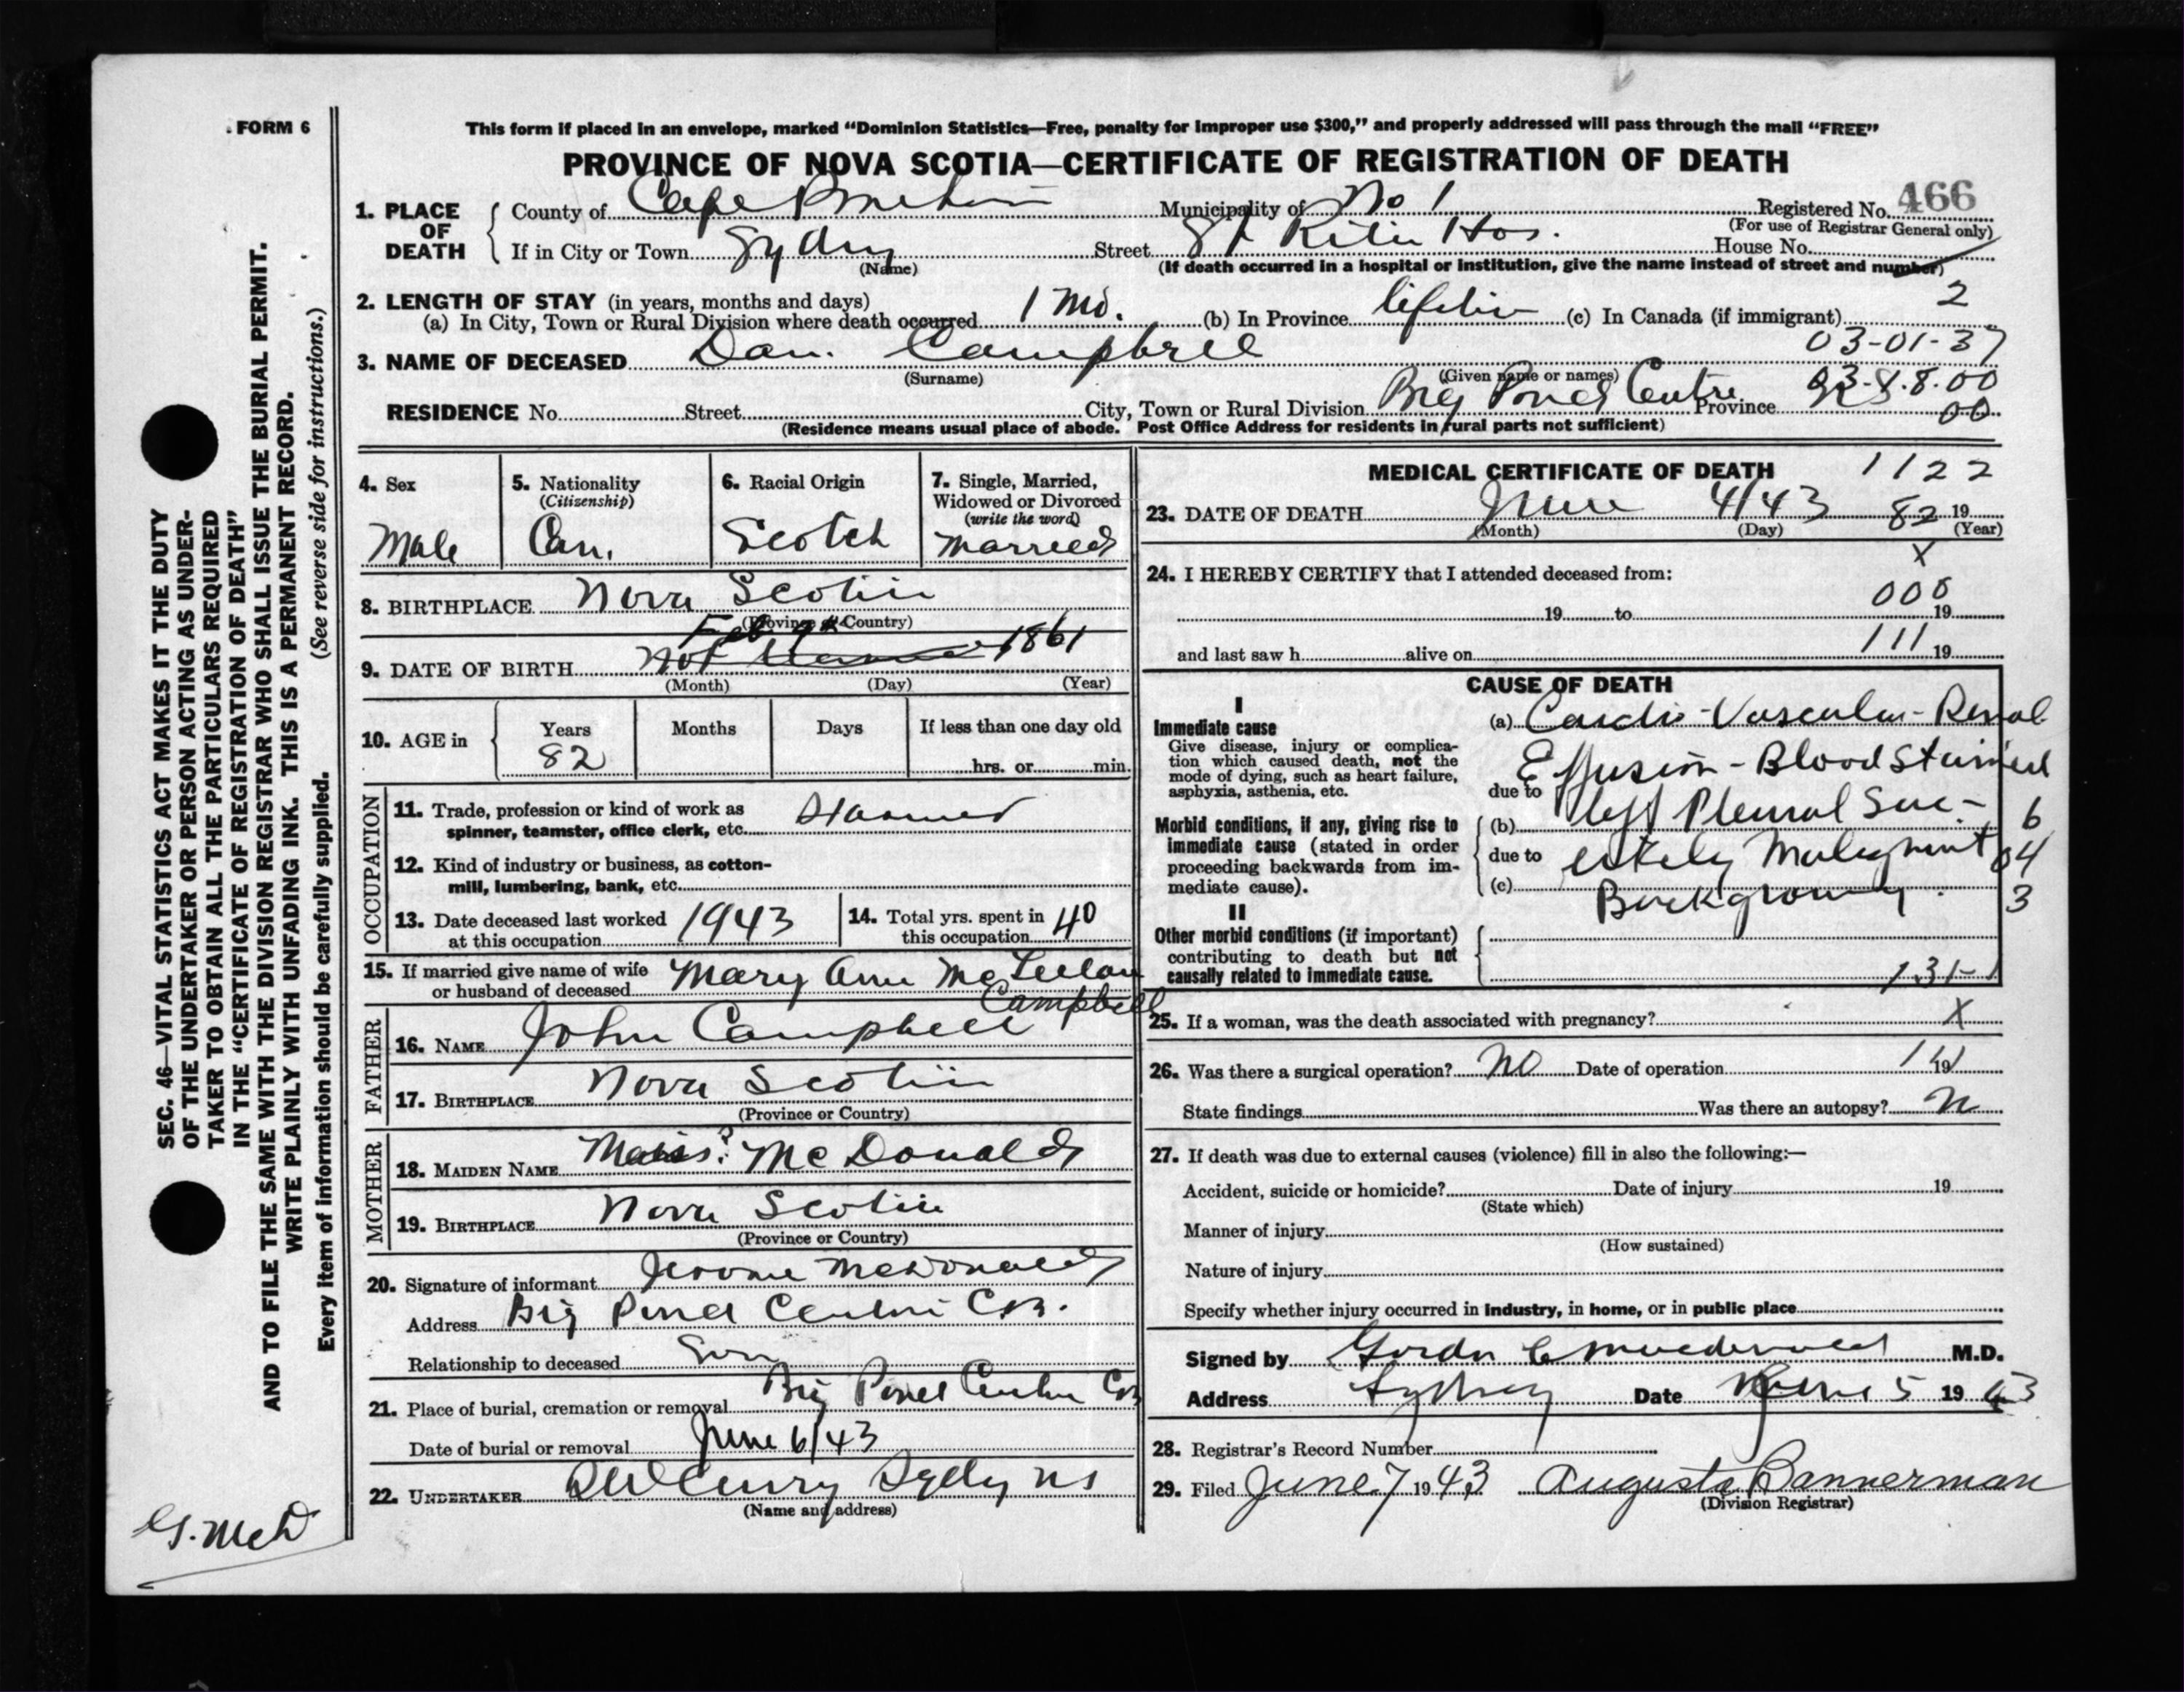 FORM 6
This form if placed in an envelope, marked “Dominion Statistics—Free, penalty for improper use $300,” and properly addressed will pass through the mail “FREE”
PROVINCE OF NOVA SCOTIA—CERTIFICATE OF REGISTRATION OF DEATH
1. PLACE OF DEATH
County of Cape Breton Municipality of No 1 Registered No. 466
(For use of Registrar General only)
If in City or Town Sydney Street St Rita Hos. House No.
(Name) (If death occurred in a hospital or institution, give the name instead of street and number)
2. LENGTH OF STAY (in years, months and days) 2
(a) In City, Town or Rural Division where death occurred 1 Mo. (b) In Province lifetime (c) In Canada (if immigrant)
3. NAME OF DECEASED Dan. Campbell 03-01-37
(Surname) (Given name or names)
RESIDENCE No. Street City, Town or Rural Division Big Pond Centre Province 00
(Residence means usual place of abode. Post Office Address for residents in rural parts not sufficient)
4. Sex
Male
5. Nationality
(Citizenship)
Can.
6. Racial Origin
Scotch
7. Single, Married,
Widowed or Divorced
(write the word)
Married
8. BIRTHPLACE Nova Scotia
(Province or Country)
9. DATE OF BIRTH Feb 1861
Not
(Month) (Day) (Year)
10. AGE in
Years Months Days If less than one day old
82 hrs. or min.
OCCUPATION
11. Trade, profession or kind of work as
spinner, teamster, office clerk, etc.
12. Kind of industry or business, as cotton-
mill, lumbering, bank, etc.
13. Date deceased last worked
at this occupation 1943
14. Total yrs. spent in
this occupation 40
15. If married give name of wife
or husband of deceased Mary Ann McLellan
Campbell
FATHER
16. NAME John Campbell
17. BIRTHPLACE Nova Scotia
(Province or Country)
MOTHER
18. MAIDEN NAME McDonald
19. BIRTHPLACE Nova Scotia
(Province or Country)
20. Signature of informant Jerome McDonald
Address Big Pond Centre C.B.
Relationship to deceased Son
21. Place of burial, cremation or removal Big Pond Centre CB
Date of burial or removal June 6/43
22. UNDERTAKER Curry Sydney NS
(Name and address)
MEDICAL CERTIFICATE OF DEATH 1122
23. DATE OF DEATH June 4/43 82 19
(Month) (Day) (Year)
X
24. I HEREBY CERTIFY that I attended deceased from:
000
19 to 19
and last saw h alive on 111 19
CAUSE OF DEATH
I
Immediate cause
Give disease, injury or complica-
tion which caused death, not the
mode of dying, such as heart failure,
asphyxia, asthenia, etc.
(a) Cardio-Vascular-Renal
Effusion - Blood Stained
due to
Morbid conditions, if any, giving rise to
immediate cause (stated in order
proceeding backwards from im-
mediate cause).
(b) left Pleural Sac - 6
due to Malignant 04
(c) Background. 3
II
Other morbid conditions (if important)
contributing to death but not
causally related to immediate cause.
131-1
25. If a woman, was the death associated with pregnancy? X
26. Was there a surgical operation? No Date of operation 19
State findings Was there an autopsy? N
27. If death was due to external causes (violence) fill in also the following:—
Accident, suicide or homicide? Date of injury 19
(State which)
Manner of injury
(How sustained)
Nature of injury
Specify whether injury occurred in industry, in home, or in public place
Signed by Gordon M.D.
Address Sydney Date June 5 1943
28. Registrar's Record Number
29. Filed June 7 1943 Augusta Bannerman
(Division Registrar)
SEC. 46—VITAL STATISTICS ACT MAKES IT THE DUTY
OF THE UNDERTAKER OR PERSON ACTING AS UNDER-
TAKER TO OBTAIN ALL THE PARTICULARS REQUIRED
IN THE “CERTIFICATE OF REGISTRATION OF DEATH”
AND TO FILE THE SAME WITH THE DIVISION REGISTRAR WHO SHALL ISSUE THE BURIAL PERMIT.
WRITE PLAINLY WITH UNFADING INK. THIS IS A PERMANENT RECORD.
(See reverse side for instructions.)
Every item of information should be carefully supplied.
G. McD